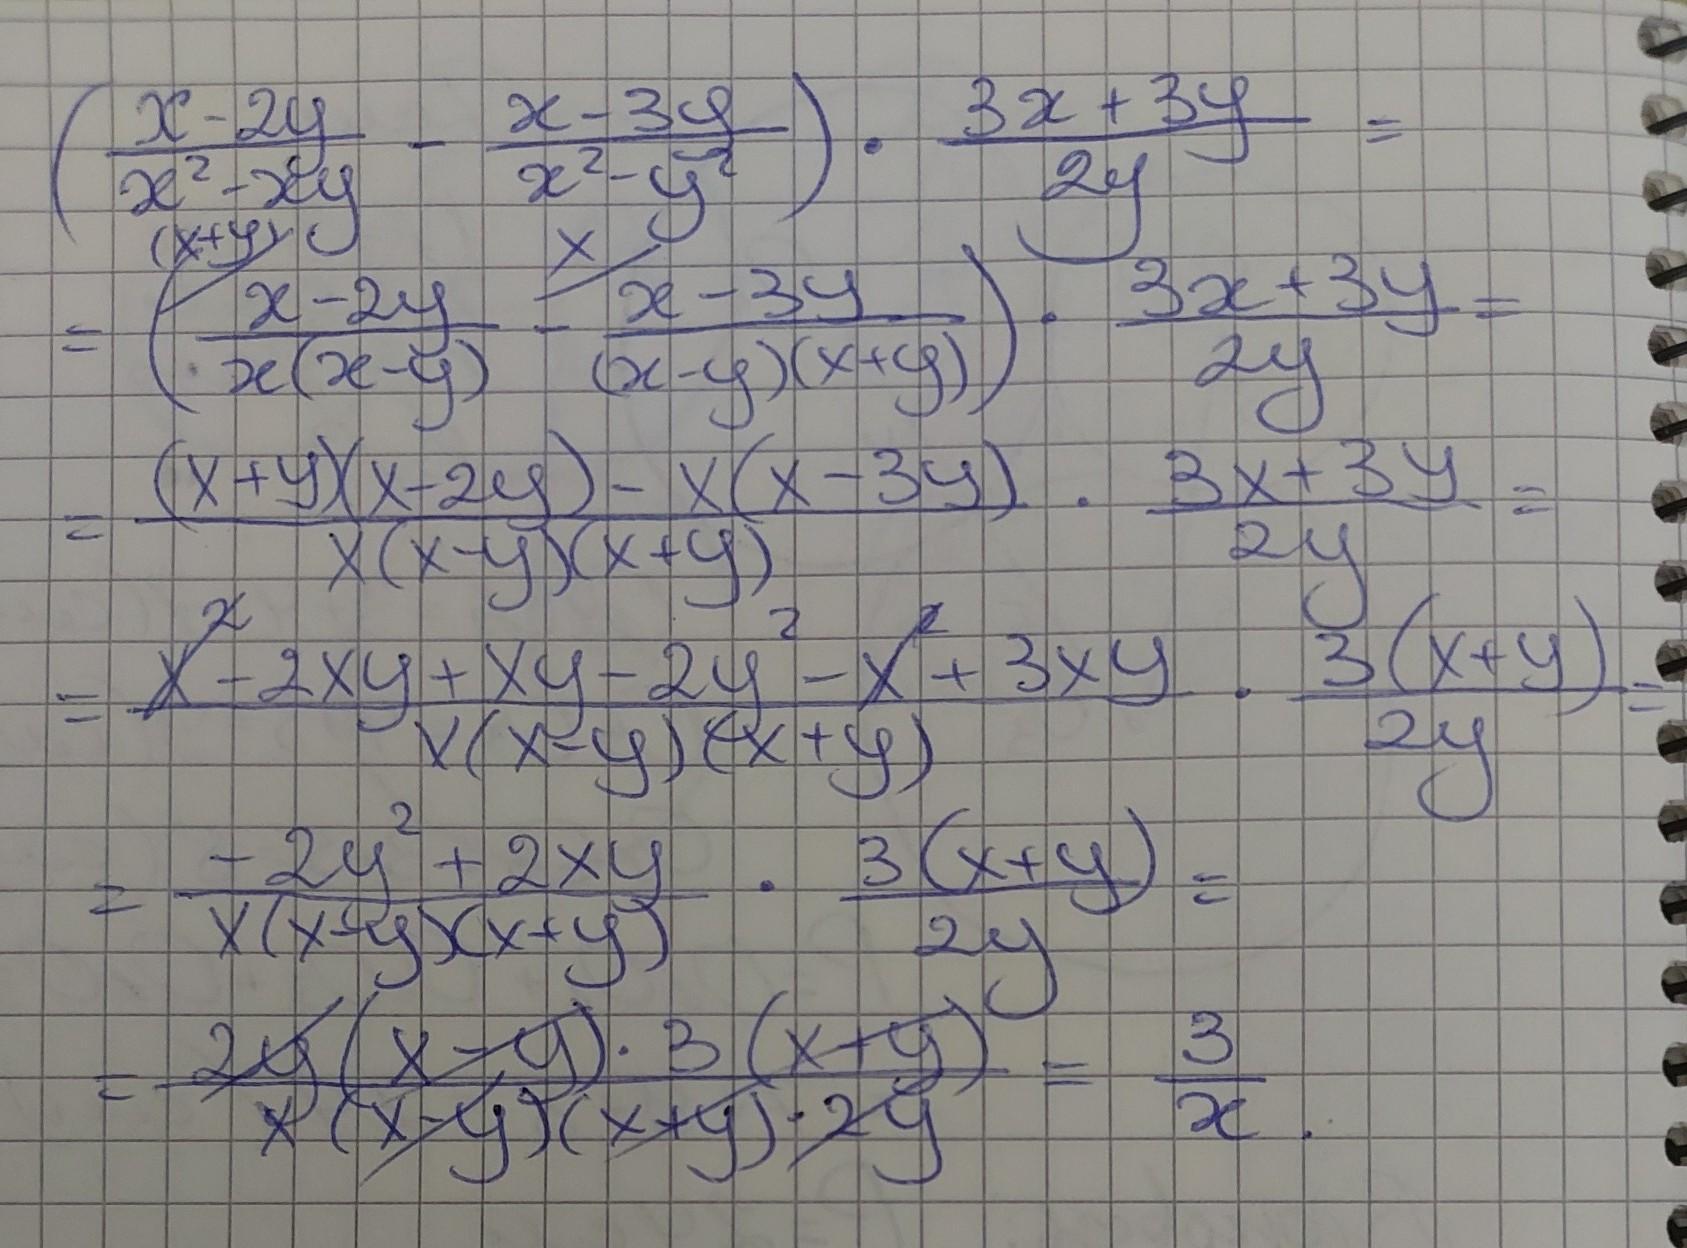 (x-2y/x²-xy - x-3y/x²-y²) · 3x+3y/2y =
(x+y) x
= (x-2y/x(x-y) - x-3y/(x-y)(x+y)) · 3x+3y/2y =
= (x+y)(x-2y)-x(x-3y)/x(x-y)(x+y) · 3x+3y/2y =
= x²-2xy+xy-2y²-x²+3xy/x(x-y)(x+y) · 3(x+y)/2y =
= -2y²+2xy/x(x-y)(x+y) · 3(x+y)/2y =
= 2y(x-y)·3(x+y)/x(x-y)(x+y)·2y = 3/x.